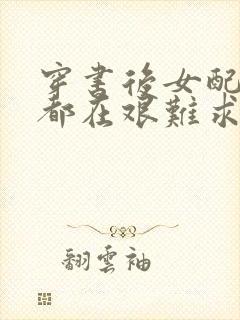 穿書後女配
都在艱難求
翻雲袖